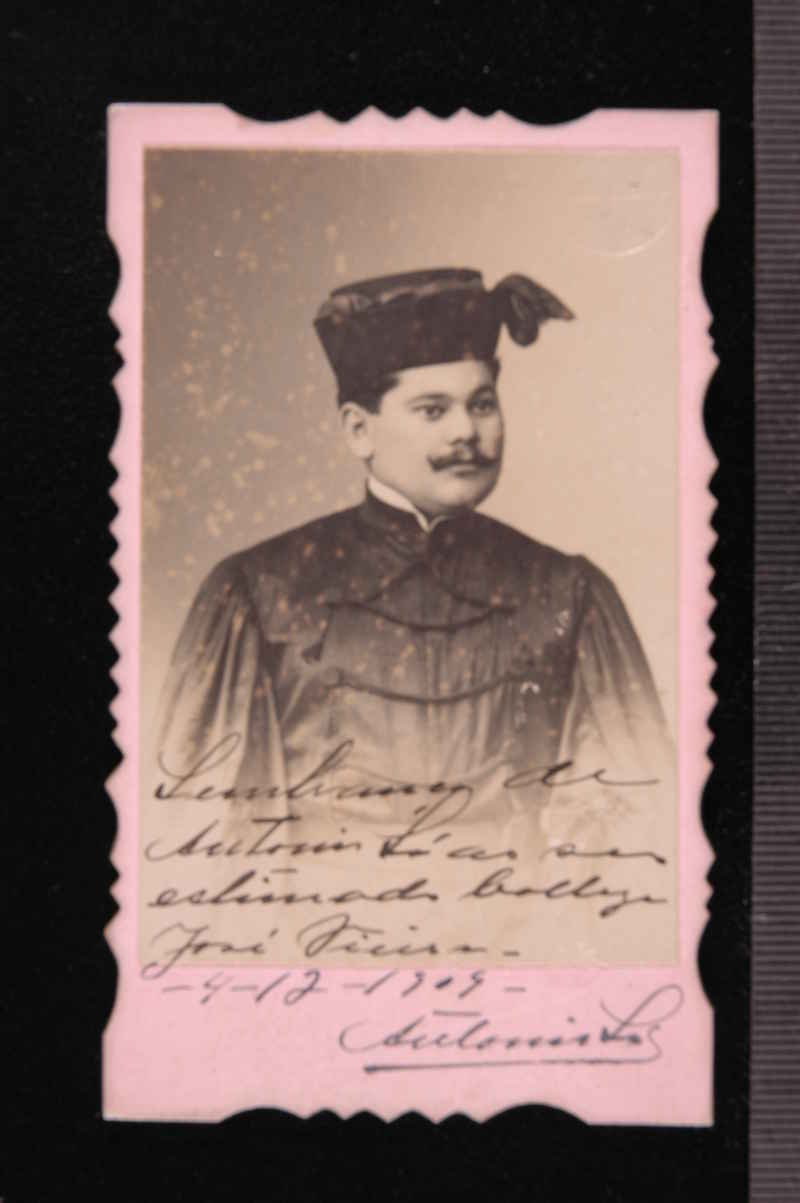 Lembrança de
Antonio Sá ao seu
estimado Collega
José Vieira -
- 4 - 12 - 1909 -
Antonio Sá